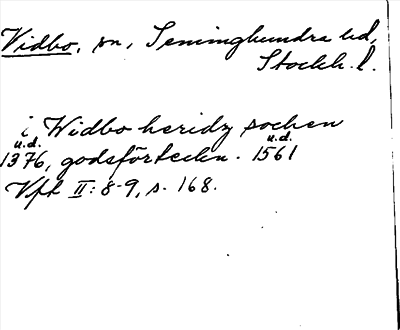 Vidbo, sn, Seminghundra hd,
Stockh. l.
i Widbo heridz sochen
u.d. u.d.
1376, godsförteckn. 1561
Vfk II: 8-9, s. 168.